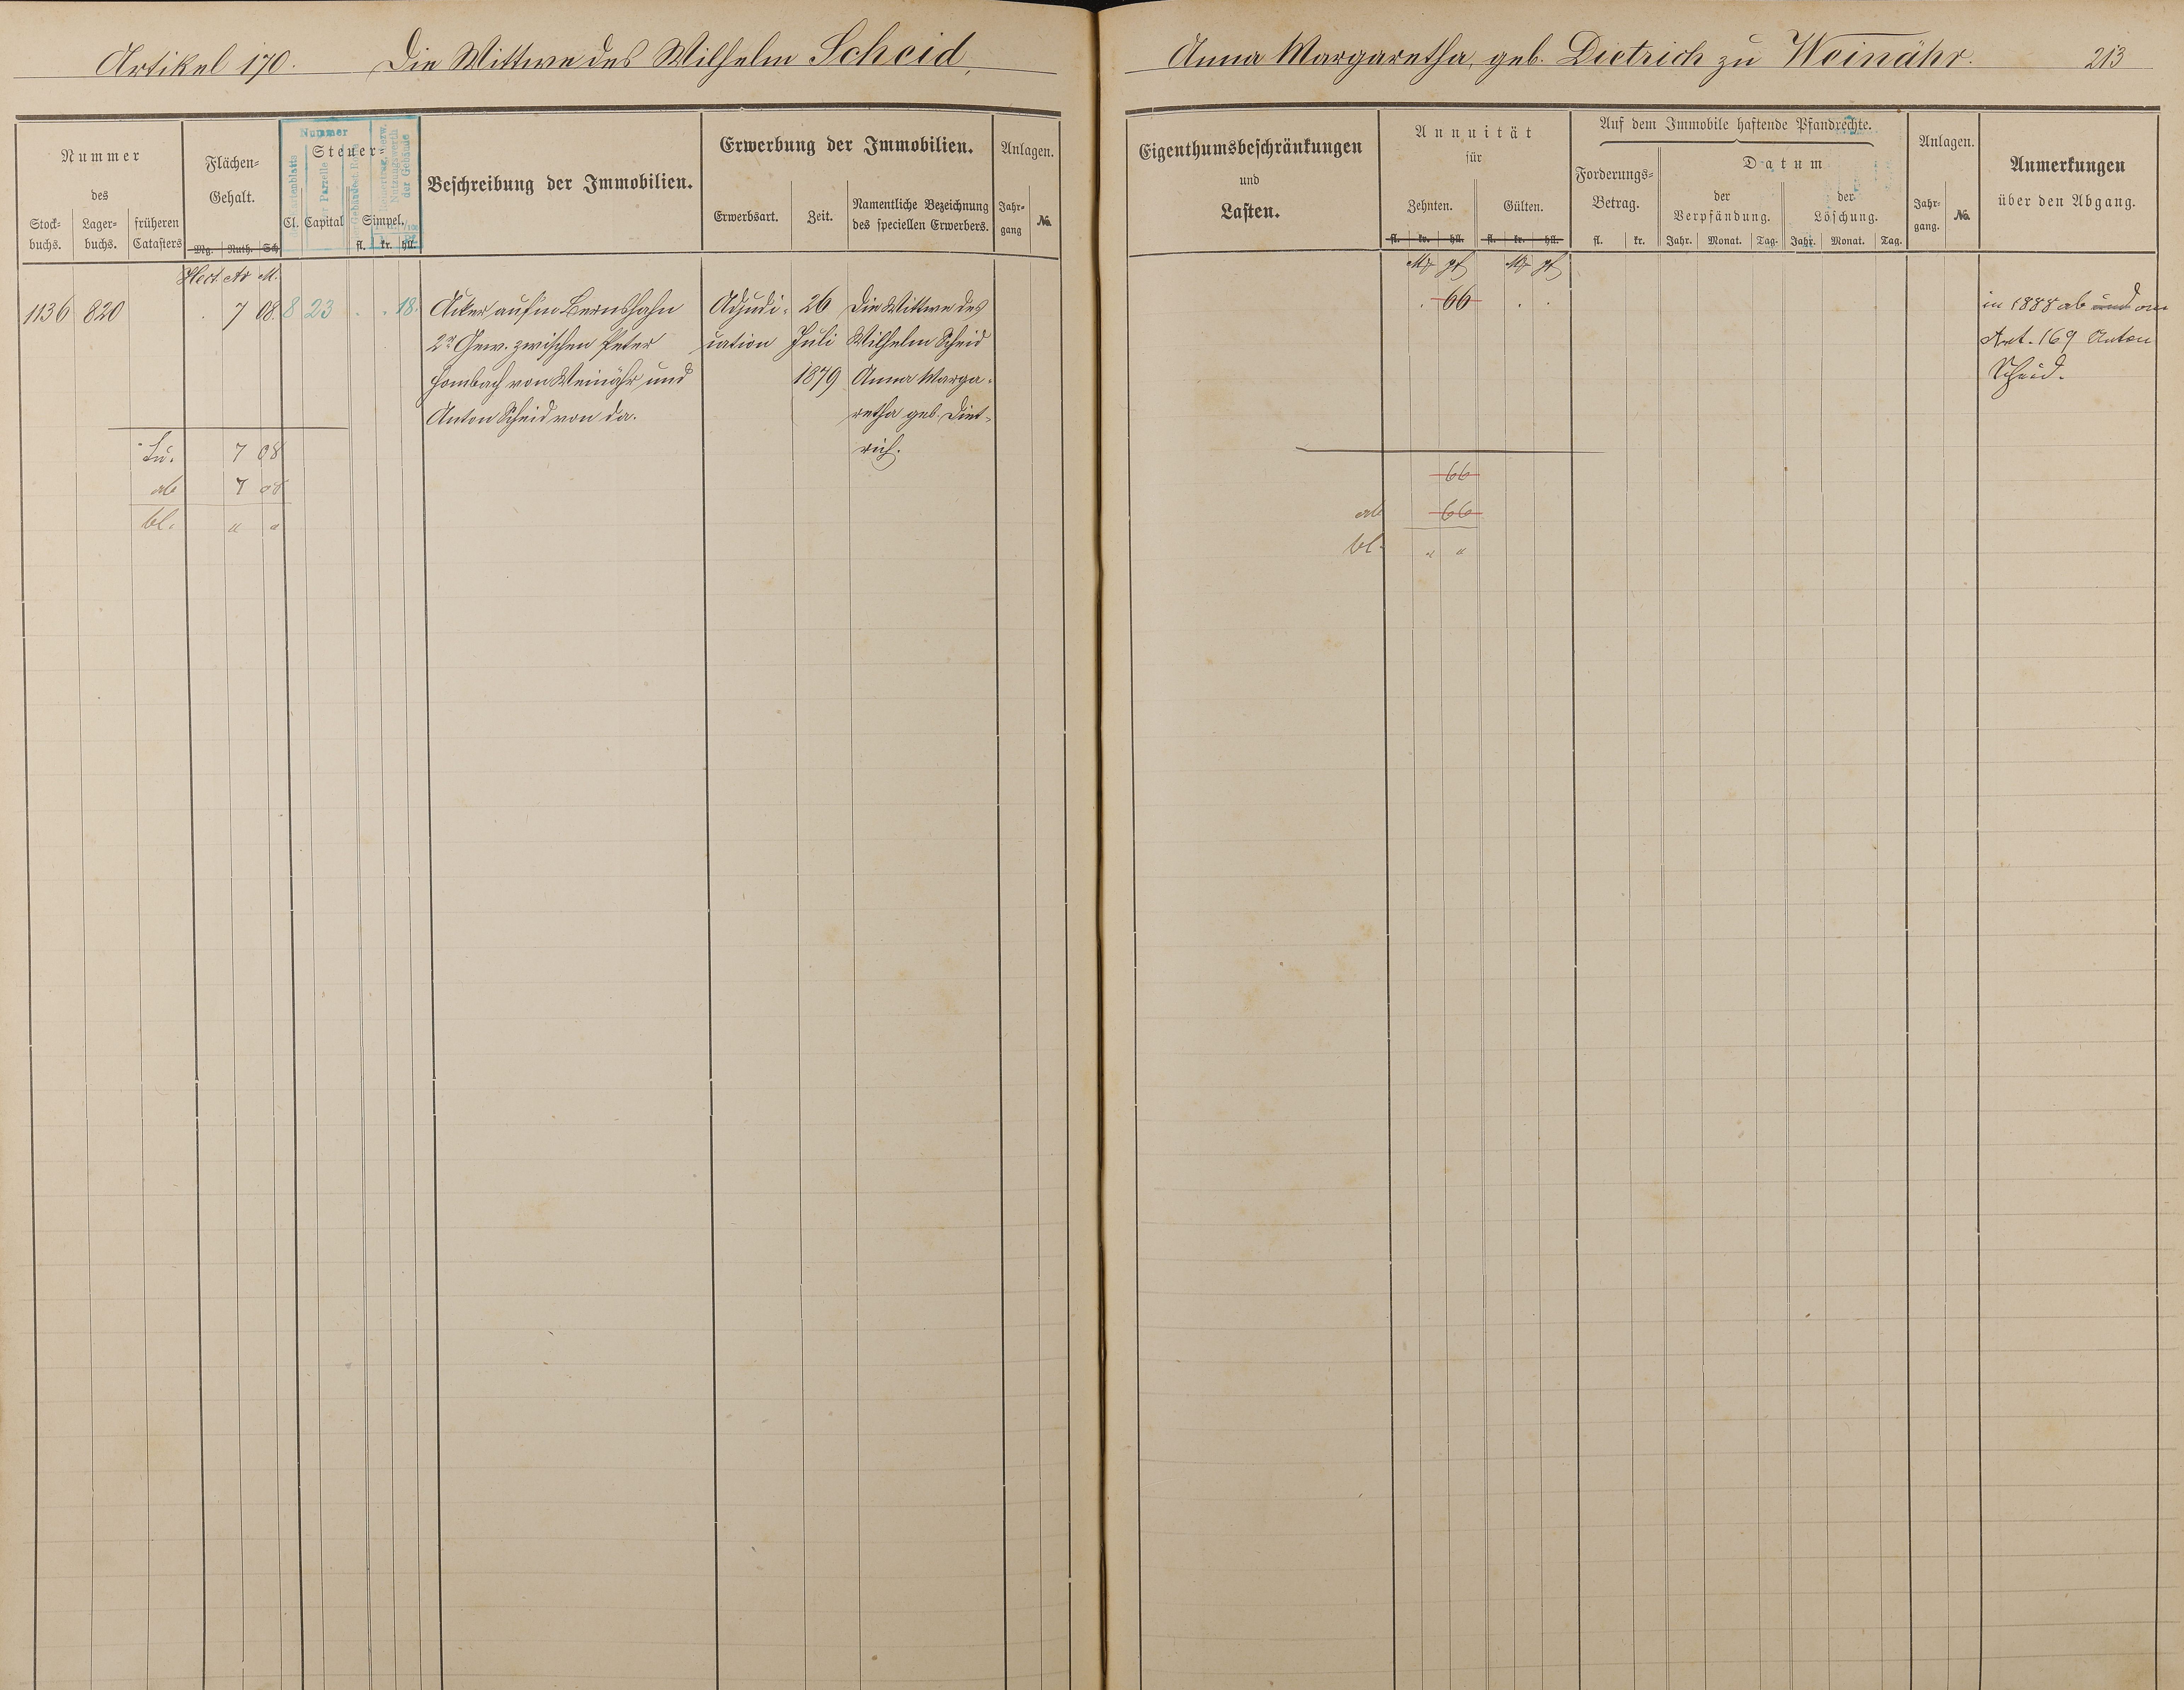 Artikel 170. Die Wittwe des Wilhelm Scheid,
Anna Margaretha, geb. Dietrich zu Weinähr. 213
Nummer
des
Stock-
buchs.
Lager-
buchs.
früheren
Catasters
Flächen-
Gehalt.
Mg. Ruth. Sch
Nummer
Steuer-
Cl. Capital
Simpel.
fl. kr. hll.
Beschreibung der Immobilien.
Erwerbung der Immobilien.
Erwerbsart. Zeit.
Namentliche Bezeichnung
des speciellen Erwerbers.
Anlagen.
Jahr-
gang
No.
Hect. Ar M.
1136 820 . 7 08. 8 23 . . 18.
Acker auf'm Bernshahn
2r Gew. zwischen Peter
Hombach von Weinähr und
Anton Scheid von da.
Adjudi-
cation
26
Juli
1879
Die Wittwe des
Wilhelm Scheid
Anna Marga-
retha geb. Diet-
rich.
Su. 7 08
ab 7 08
bl. " "
Eigenthumsbeschränkungen
und
Lasten.
Annuität
für
Zehnten. Gülten.
fl. kr. hll. fl. kr. hll.
Auf dem Immobile haftende Pfandrechte.
Forderungs-
Betrag.
fl. kr.
Datum
der
Verpfändung.
Jahr. Monat. Tag.
der
Löschung.
Jahr. Monat. Tag.
Anlagen.
Jahr-
gang.
No.
Anmerkungen
über den Abgang.
M pf M pf
. 66 . .
in 1888 ab und an
Art. 169 Anton
Scheid.
66
ab 66
bl. " "